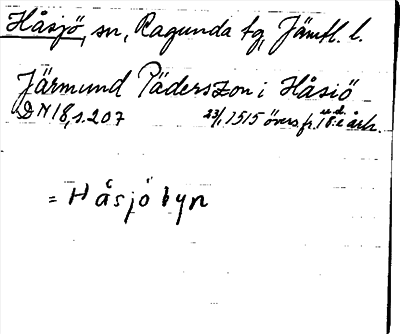 Håsjö, sn, Ragunda tg, Jämtl. l.
Järmund Päderszon i Håsiö
DN 18, s. 207 23/1 1515 övers. fr. 18:e årh.
= Håsjöbyn